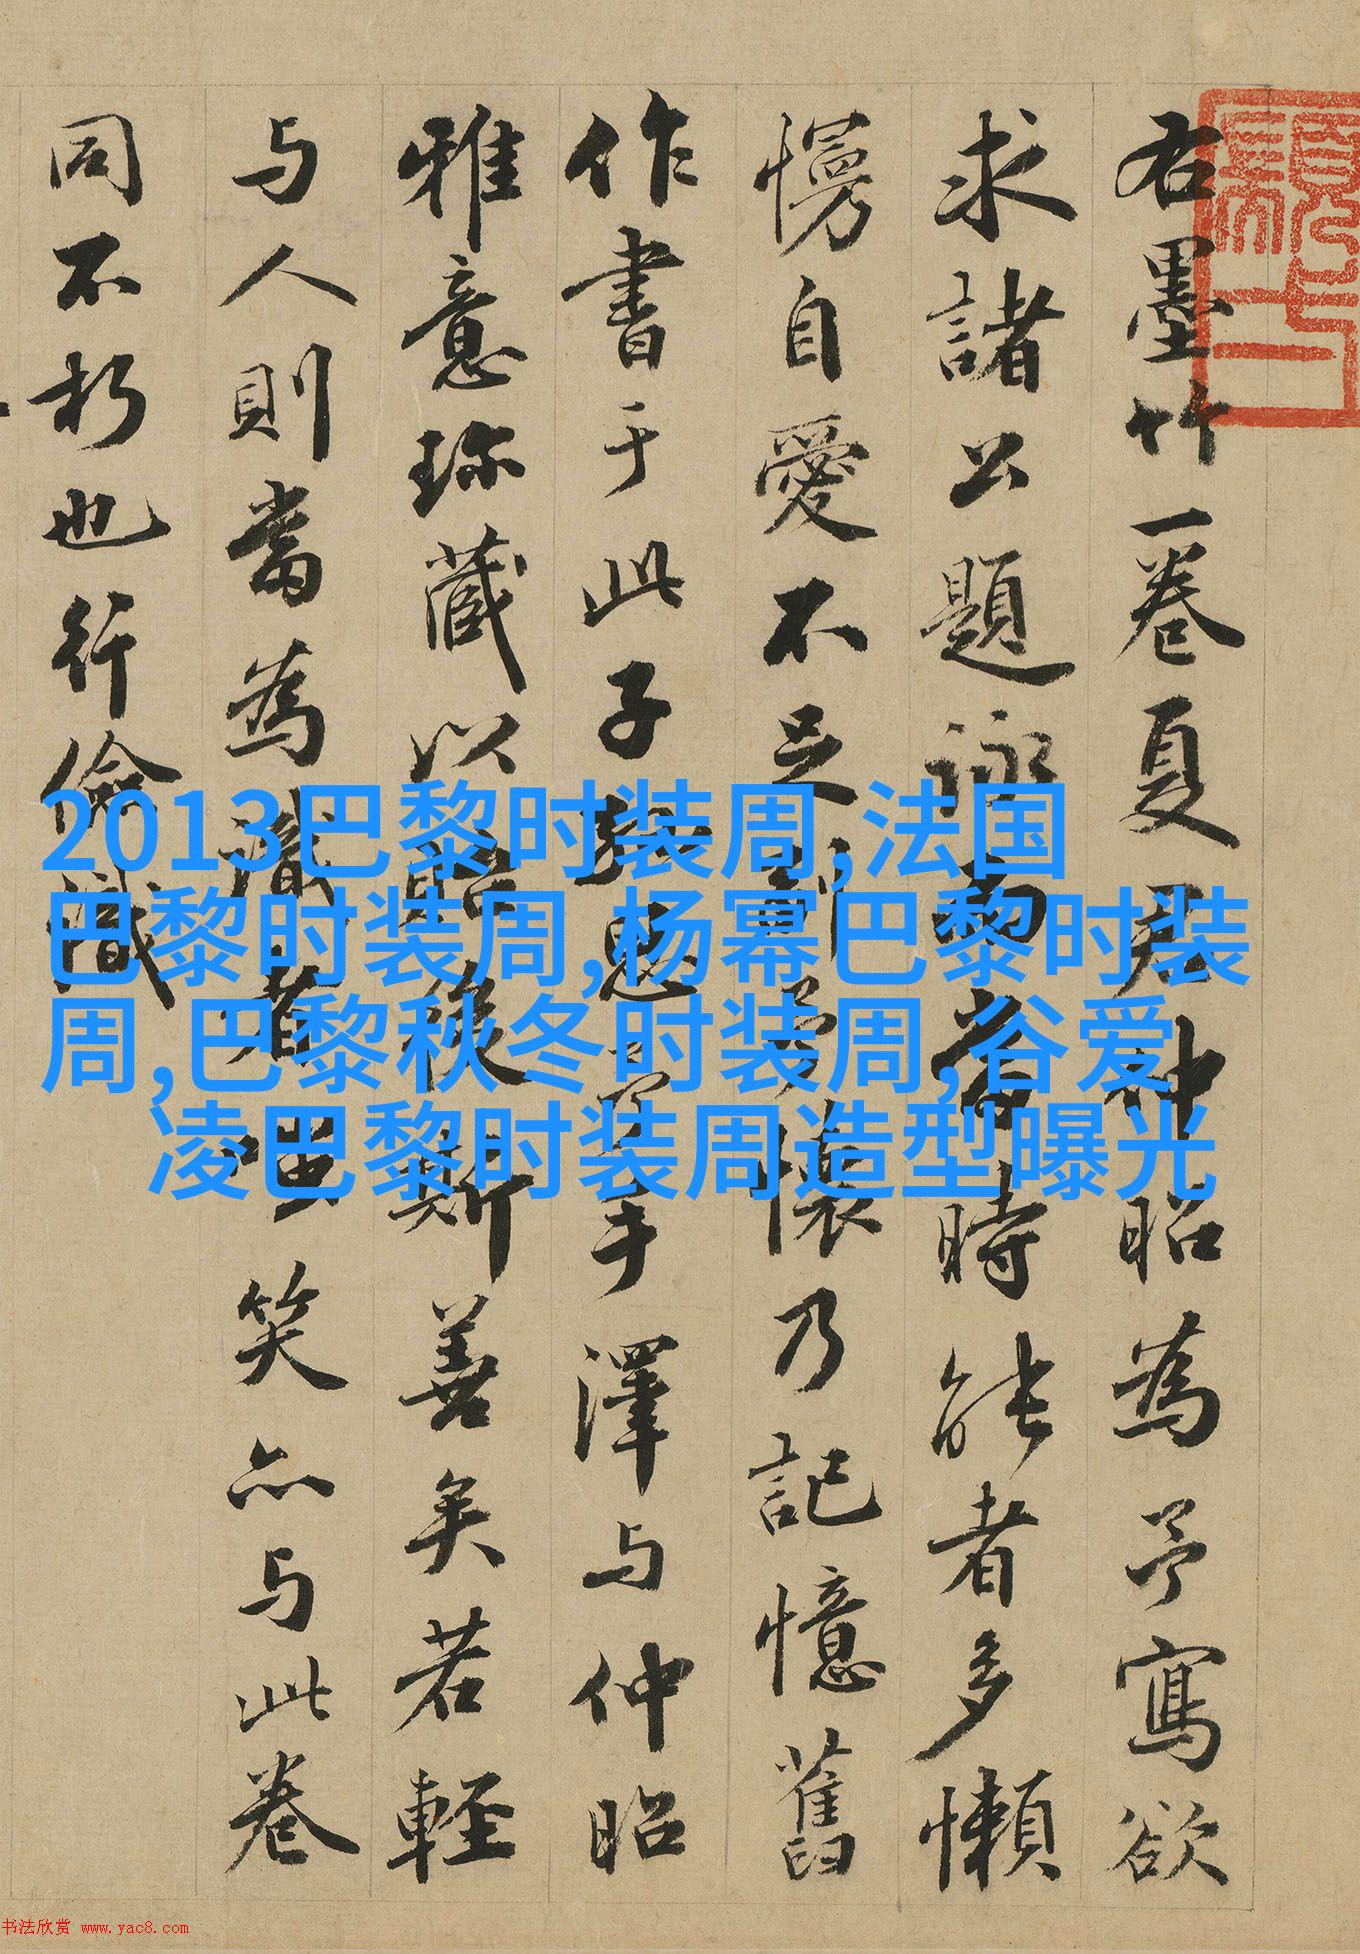 右墨竹一卷夏君仲昭為予寫欲
求諸公題詠而當時能者多懶
慢自愛不足副予懷乃記憶舊
作書于此子孫思予手澤与仲昭
雅意珎藏以貽後斯善矣若輕
与人則當為識者嗤笑亦与此卷
同不朽也行儉識
2013巴黎时装周,法国
巴黎时装周,杨幂巴黎时装
周,巴黎秋冬时装周,谷爱
凌巴黎时装周造型曝光
书法欣赏 www.yac8.com